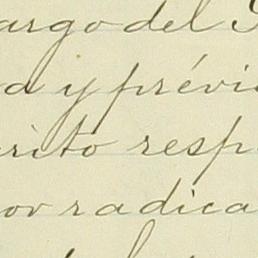 argo del
a y prévi
rito resp
or radica